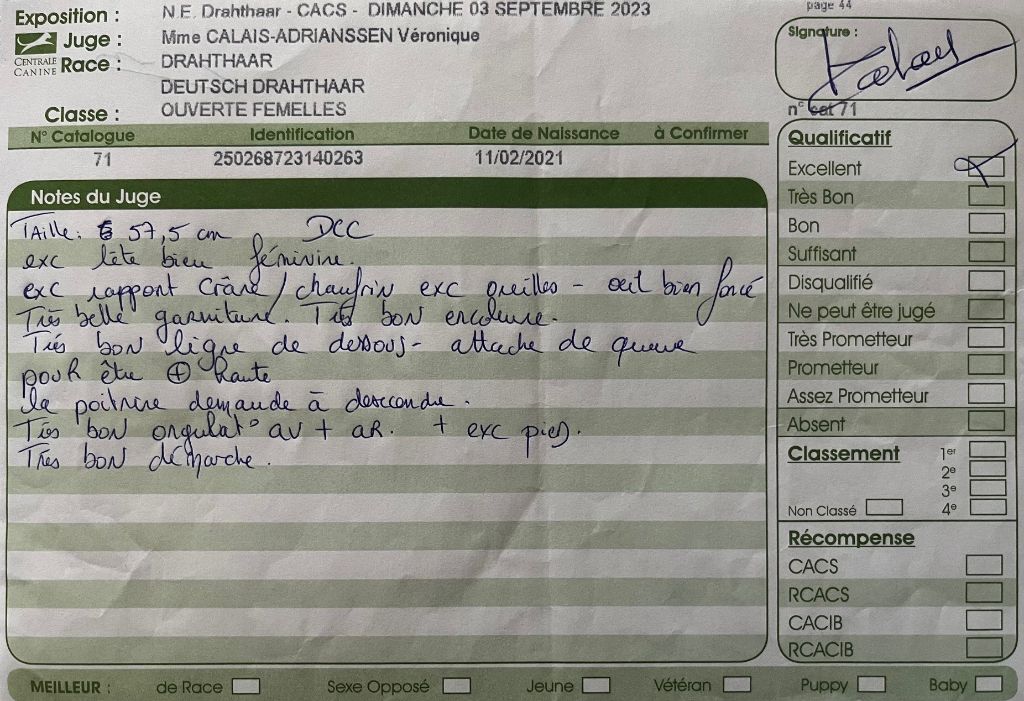 Exposition : N.E. Drahthaar - CACS - DIMANCHE 03 SEPTEMBRE 2023
page 44
CENTRALE CANINE
Juge : Mme CALAIS-ADRIANSSEN Véronique
Signature :
Race : DRAHTHAAR
DEUTSCH DRAHTHAAR
Classe : OUVERTE FEMELLES
n° cat 71
N° Catalogue Identification Date de Naissance à Confirmer
71 250268723140263 11/02/2021
Notes du Juge
TAille: 57,5 cm DCC
exc tête bien féminine.
exc rapport crâne / chanfrin exc oreilles - oeil bien foncé
Très belle garniture. Très bon encolure.
Très bon ligne de dessous - attache de queue
pour être + haute
la poitrine demande à descendre.
Très bon angulat° AV + AR. + exc pieds.
Très bon démarche.
Qualificatif
Excellent
Très Bon
Bon
Suffisant
Disqualifié
Ne peut être jugé
Très Prometteur
Prometteur
Assez Prometteur
Absent
Classement 1er
2e
3e
Non Classé 4e
Récompense
CACS
RCACS
CACIB
RCACIB
MEILLEUR : de Race Sexe Opposé Jeune Vétéran Puppy Baby